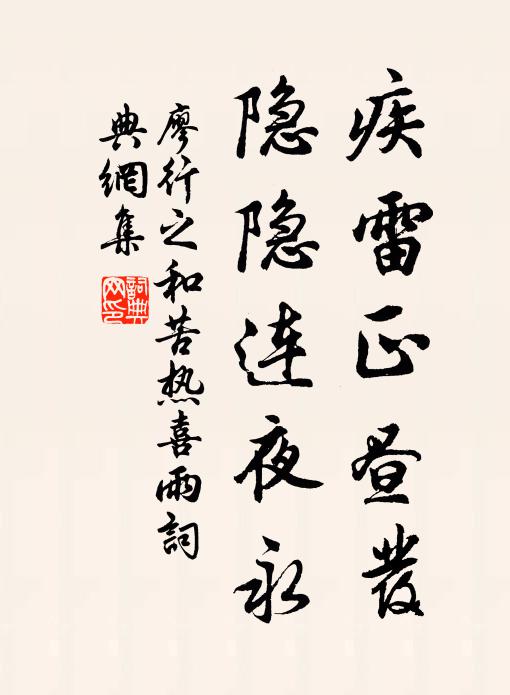 疾雷正昼發
隐隐连夜永
廖行之和苦热喜雨詞
典網集
詞典网印